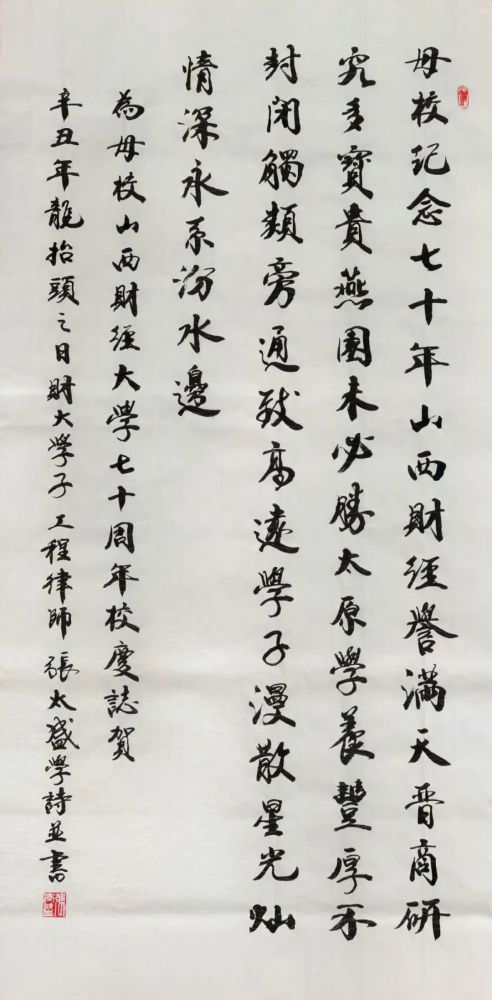 母校纪念七十年山西財經譽滿天晋商研
究多寶貴燕園未必勝太原學養豐厚不
封闭觸類旁通致高遠學子漫散星光灿
情深永系汾水邊
為母校山西財經大學七十周年校慶誌賀
辛丑年龍抬頭之日財大學子工程律師張太盛學詩並書